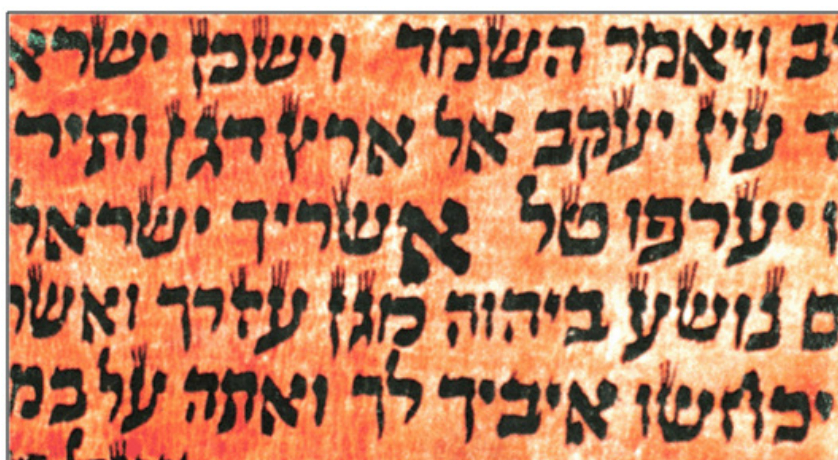 ב ויאמר השמד וישכן ישרא
ד עין יעקב אל ארץ דגן ותיר
ו יערפו טל אשריך ישראל
ם נושע ביהוה מגן עזרך ואשר
יכחשו איביך לך ואתה על במ